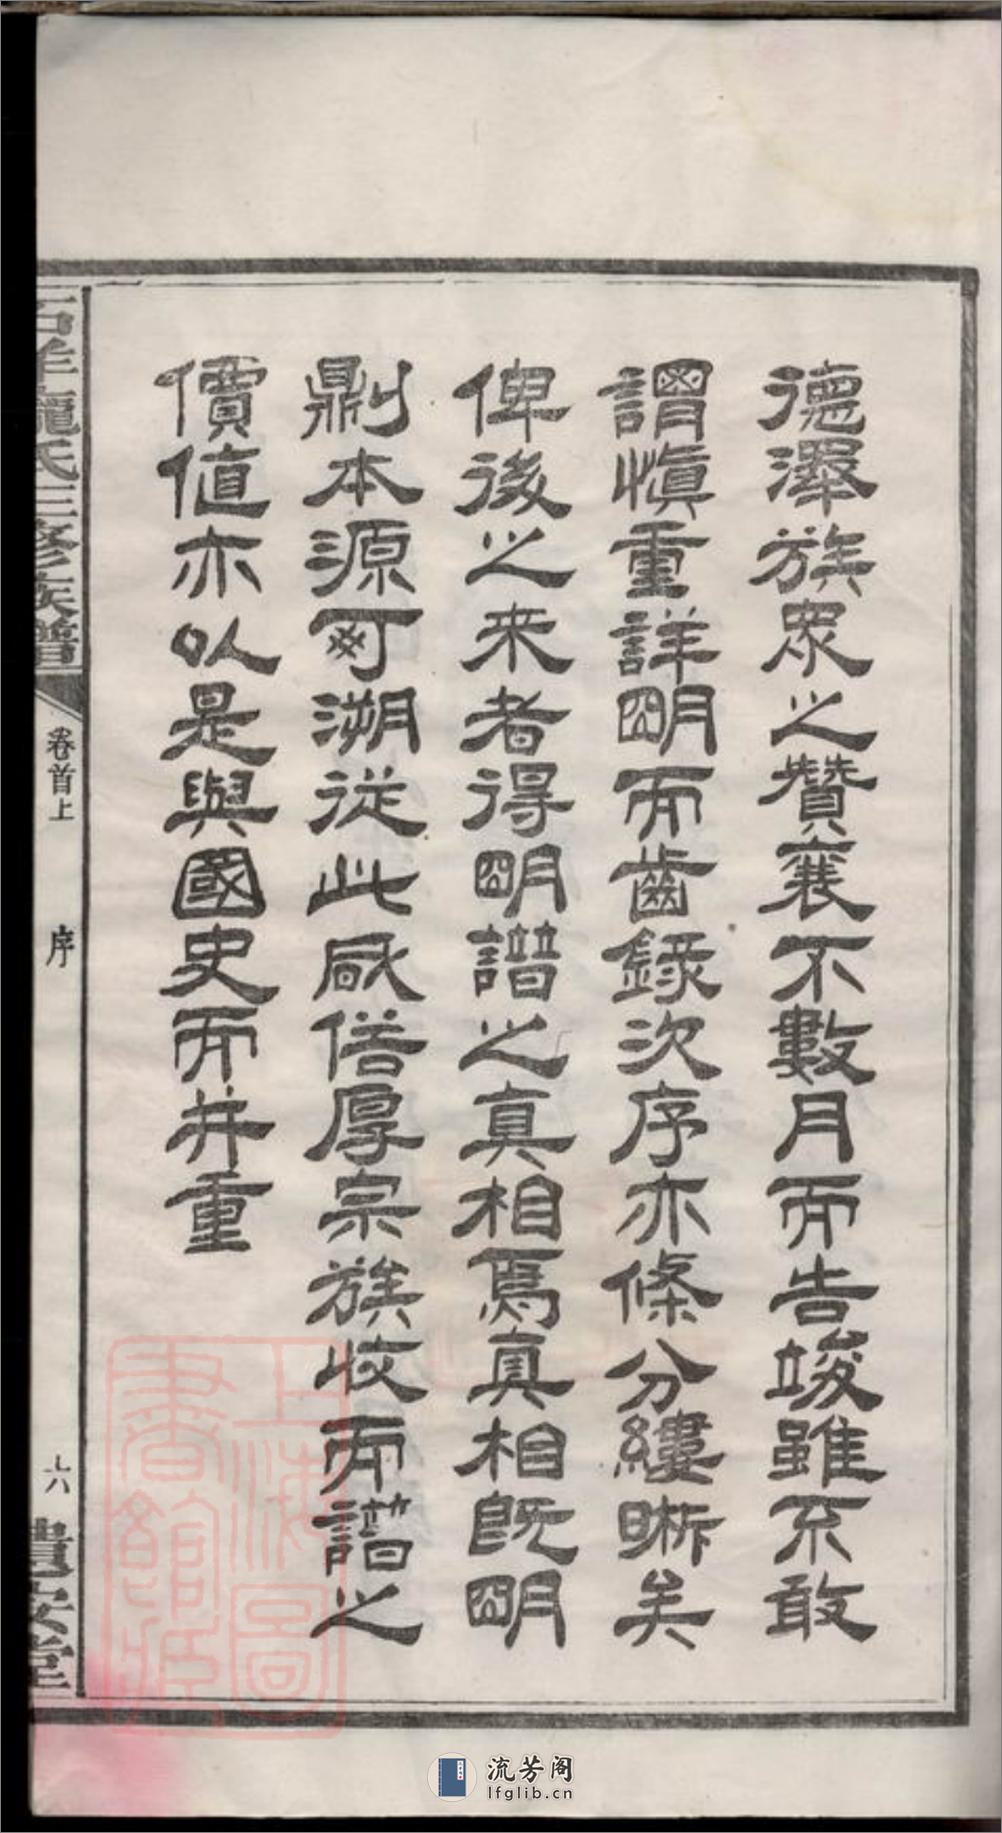 德澤族眾之贊襄不數月而告竣雖不敢
謂慎重詳明而齒錄次序亦條分縷晰矣
俾後之来者得明譜之真相焉真相既明
則本源可溯從此風俗厚宗族收而譜之
價值亦以是與國史而并重
石羊龍氏三修族譜
卷首上
序
六
遺安堂
上海圖書館藏
流芳阁
lfglib.cn